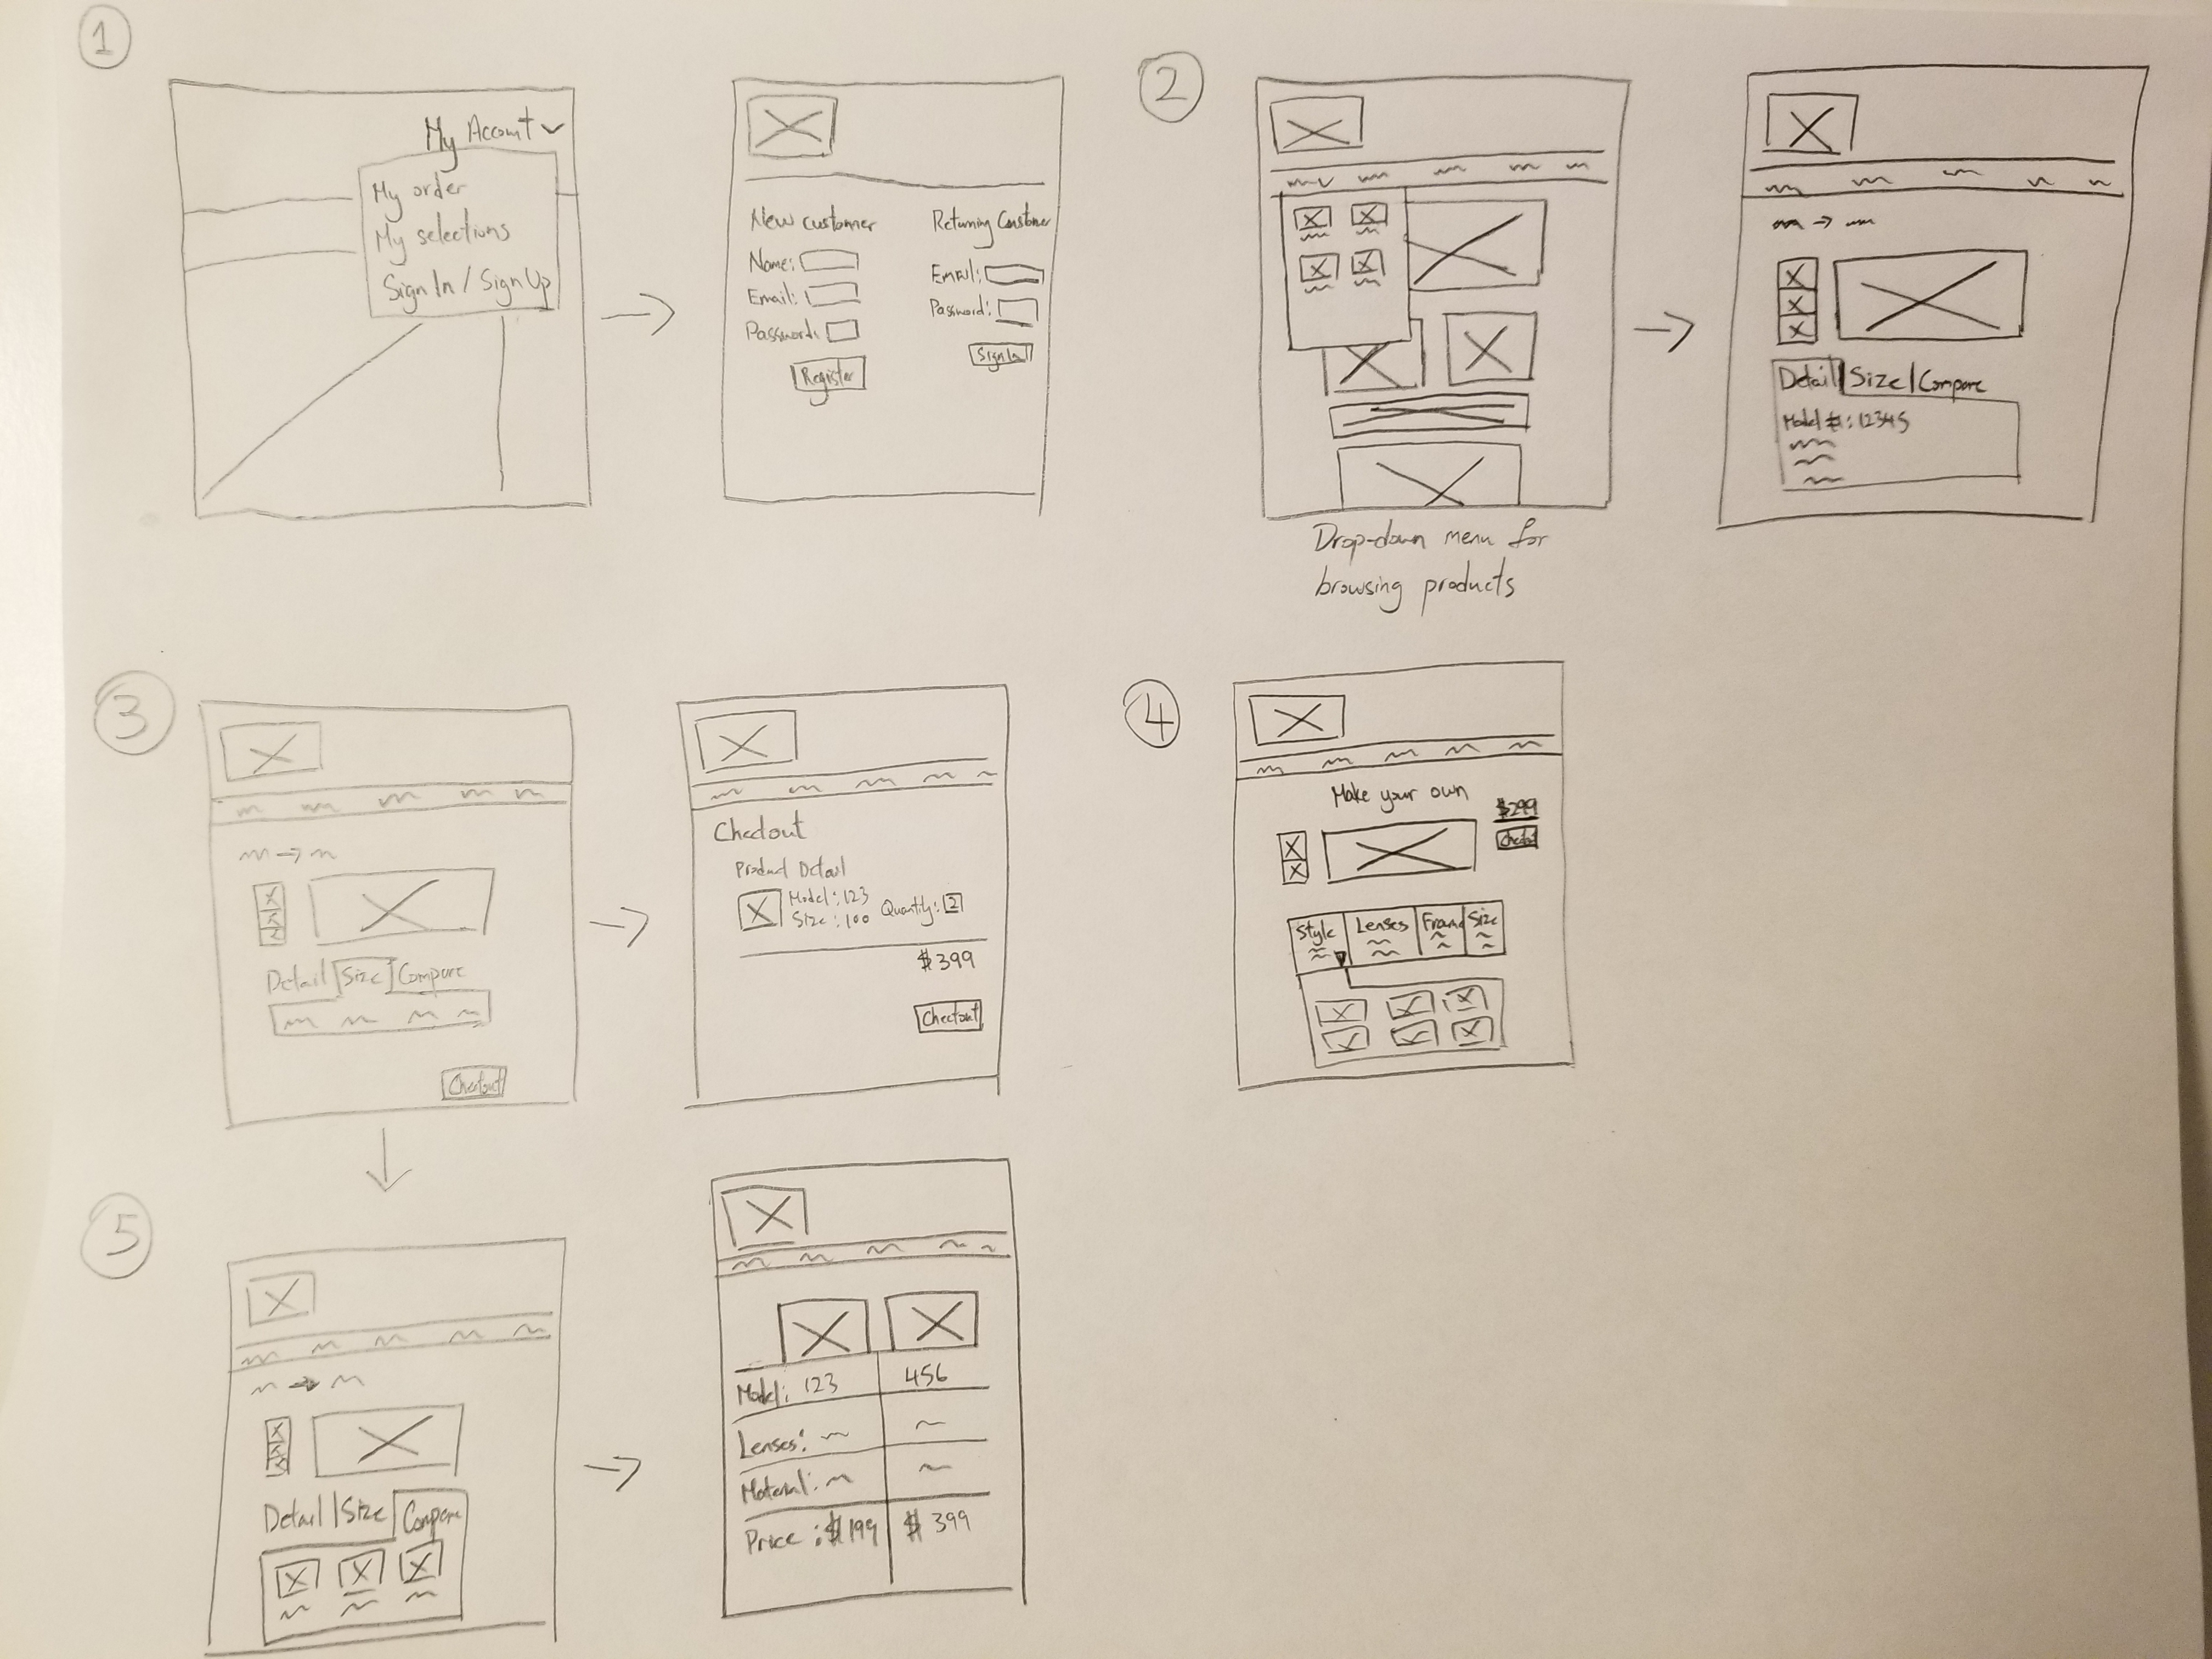 1
My Account
My order
My selections
Sign In / Sign Up
New customer
Name:
Email:
Password:
Register
Returning Customer
Email:
Password:
Sign In
2
Drop-down menu for
browsing products
Detail | Size | Compare
Model #: 12345
3
Detail | Size | Compare
Checkout
Checkout
Product Detail
Model: 123
Size: 100
Quantity: 2
$399
Checkout
4
Make your own
$299
Checkout
Style
Lenses
Frame
Size
5
Detail | Size | Compare
Model: 123 456
Lenses:
Material:
Price: $199 $399